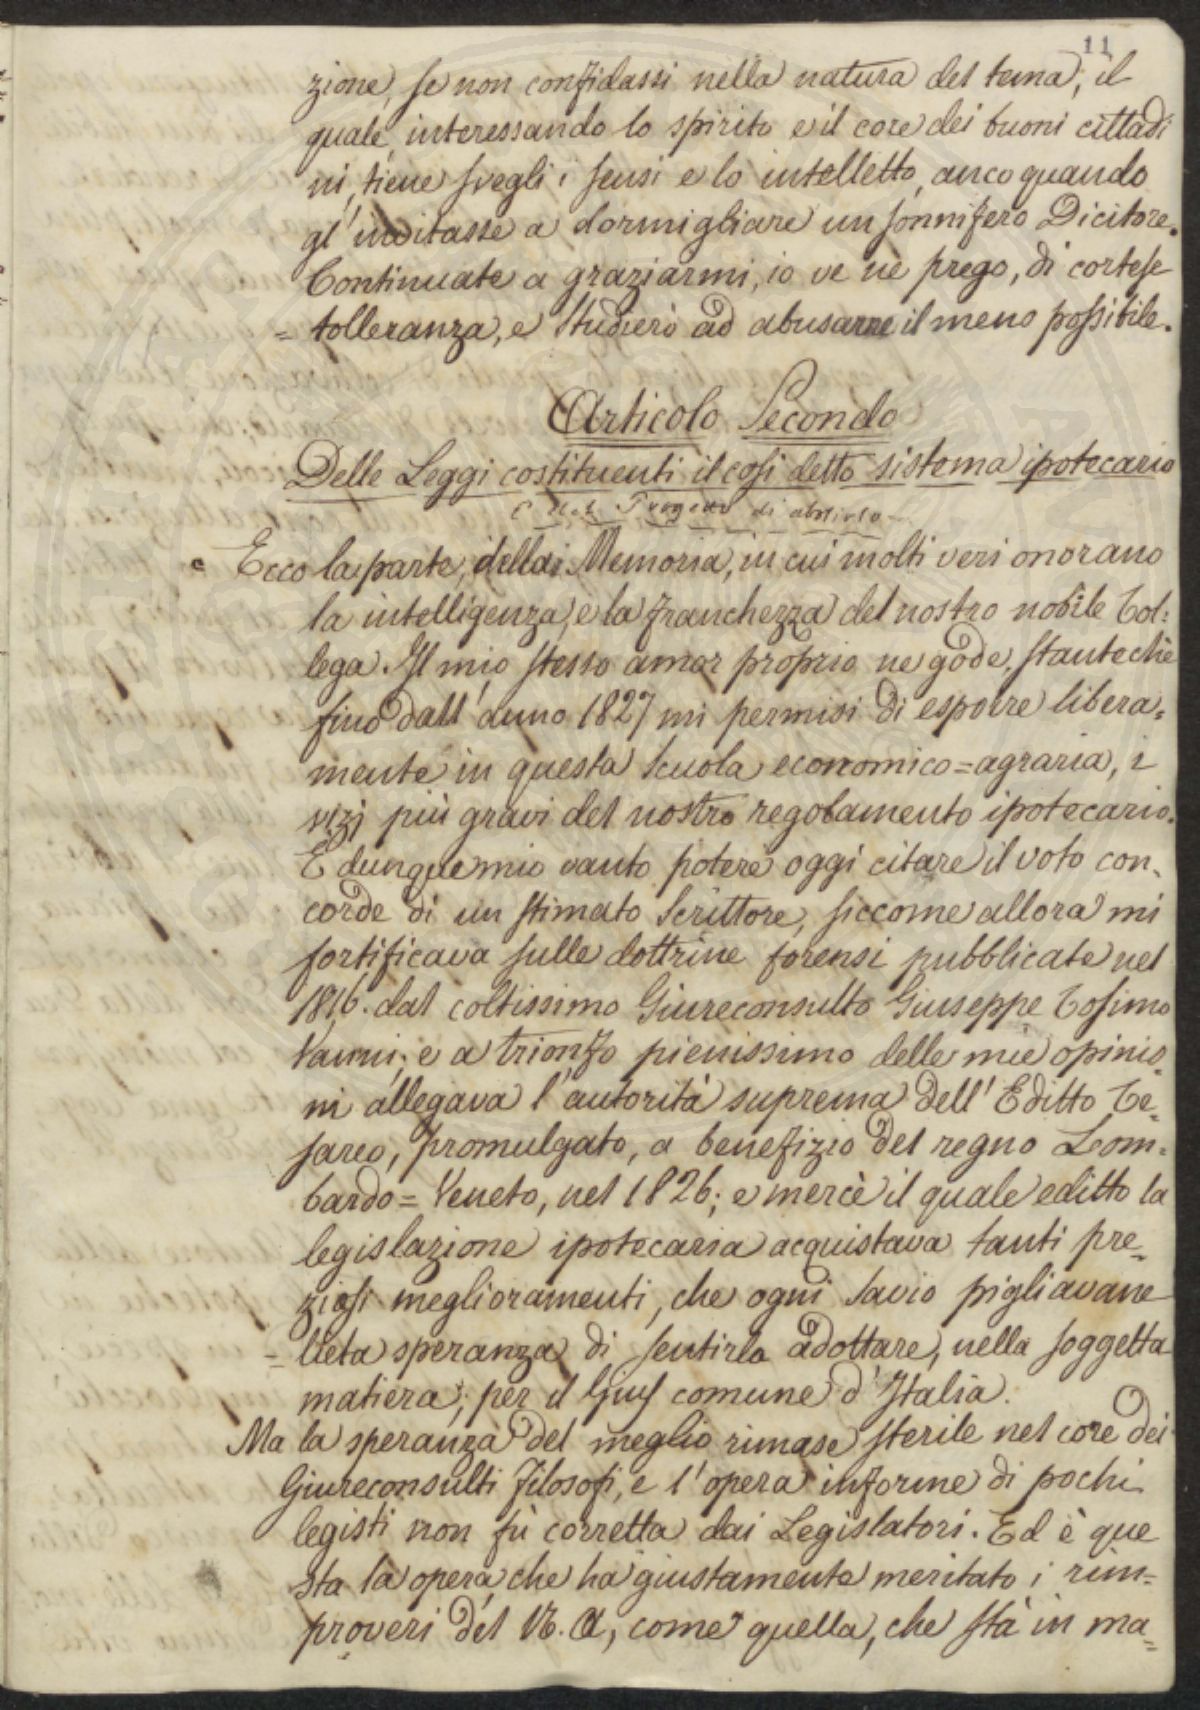 11
zione, se non confidassi nella natura del tema, il
quale, interessando lo spirito e il core dei buoni cittadi
ni, tiene svegli i sensi e lo intelletto, anco quando
gl'invitasse a dormigliare un sonnifero Dicitore.
Continuate a graziarmi, io ve ne prego, di cortese
= tolleranza, e studierò ad abusarne il meno possibile.
Articolo Secondo
Delle Leggi costituenti il così detto sistema ipotecario
e del Progetto di abolirlo
Ecco la parte, della Memoria, in cui molti veri onorano
la intelligenza, e la franchezza del nostro nobile Col:
lega. Il mio stesso amor proprio ne gode, stantechè
fino dall'anno 1827 mi permisi di esporre libera=
mente in questa Scuola economico=agraria, i
vizj più gravi del nostro regolamento ipotecario.
E dunque mio vanto potere oggi citare il voto con=
corde di un stimato Scrittore, siccome allora mi
fortificava sulle dottrine forensi pubblicate nel
1816. dal coltissimo Giureconsulto Giuseppe Cosimo
Vanni; e a trionfo pienissimo delle mie opinio=
ni allegava l'autorità suprema dell'Editto Ce=
sareo, promulgato, a benefizio del regno Lom=
bardo=Veneto, nel 1826; e mercè il quale editto la
legislazione ipotecaria acquistava tanti pre=
ziosi meglioramenti, che ogni Savio pigliavane
= lieta speranza di sentirla adottare, nella soggetta
matiera, per il Gius comune d'Italia.
Ma la speranza del meglio rimase sterile nel core dei
Giureconsulti filosofi, e l'opera informe di pochi
legisti non fù corretta dai Legislatori. Ed è que
sta la opera, che ha giustamente meritato i rim=
proveri del N. A., come quella, che stà in ma=